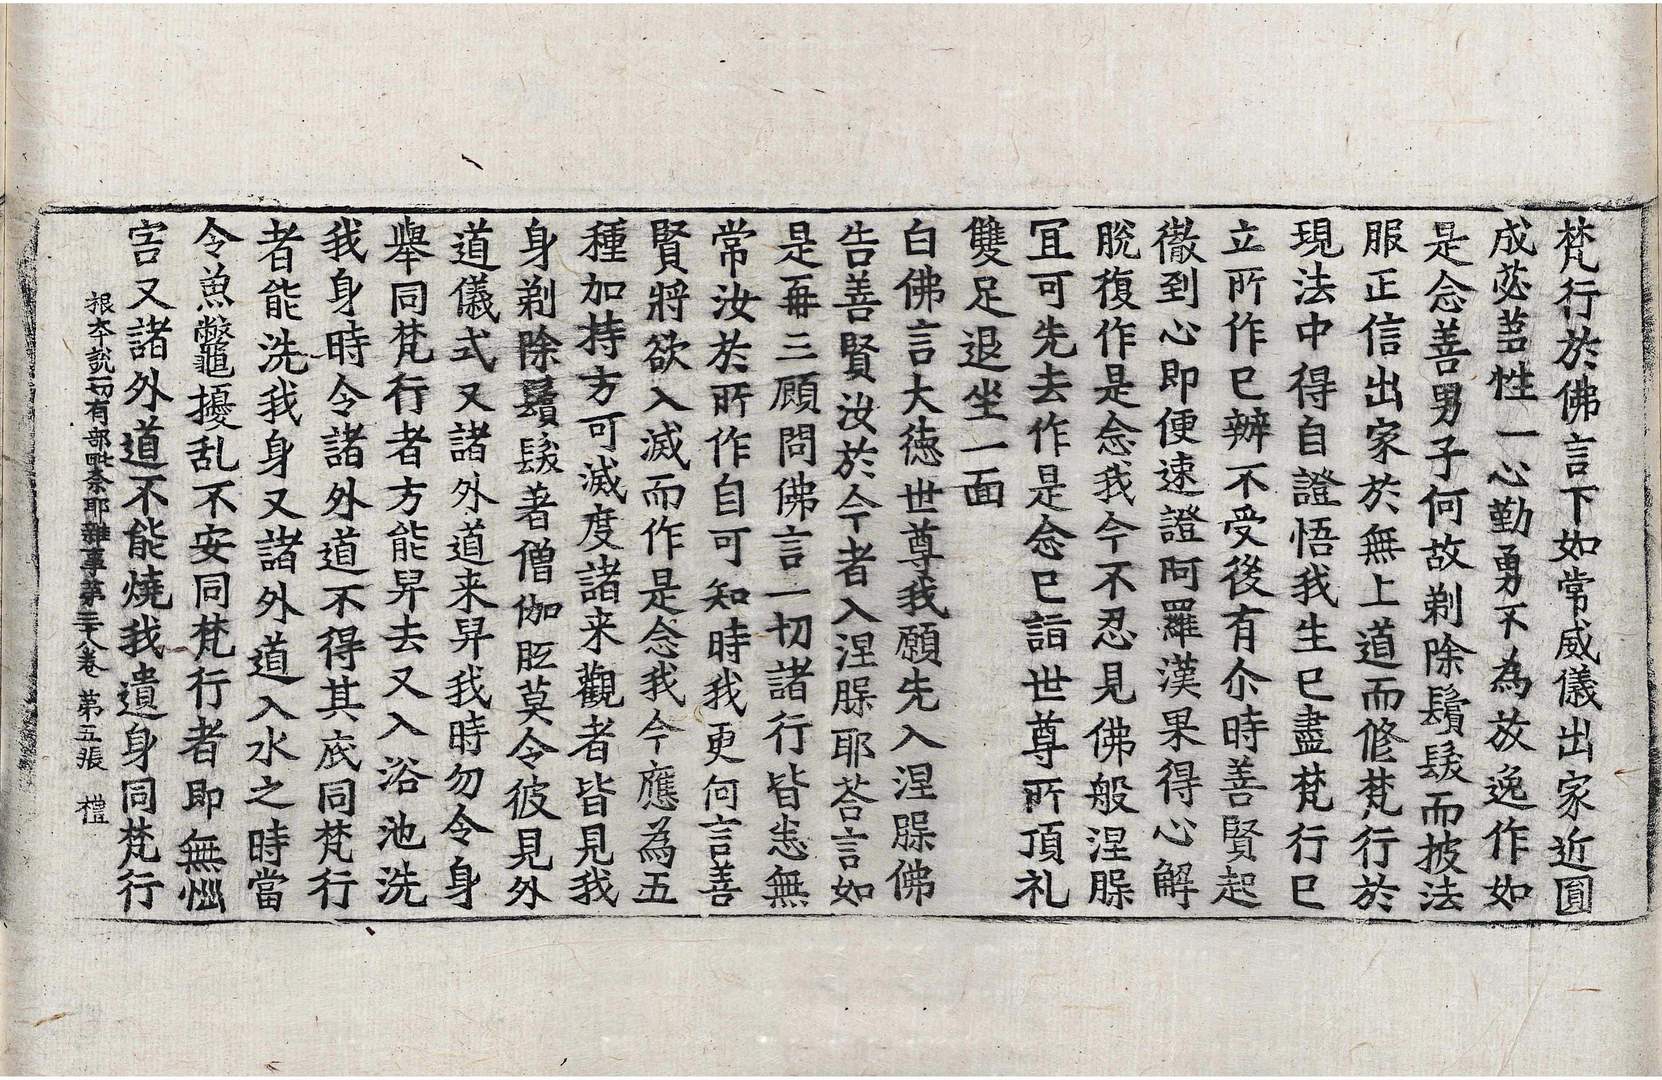 梵行於佛言下如常威儀出家近圓
成苾芻性一心勤勇不為放逸作如
是念善男子何故剃除鬚髮而披法
服正信出家於無上道而修梵行於
現法中得自證悟我生已盡梵行已
立所作已辦不受後有尒時善賢起
徹到心即便速證阿羅漢果得心解
脫復作是念我今不忍見佛般涅槃
冝可先去作是念已詣世尊所頂礼
雙足退坐一面
白佛言大德世尊我願先入涅槃佛
告善賢汝於今者入涅槃耶荅言如
是再三顧問佛言一切諸行皆悉無
常汝於所作自可知時我更何言善
賢將欲入滅而作是念我今應為五
種加持方可滅度諸来觀者皆見我
身剃除鬚髮著僧伽胝莫令彼見外
道儀式又諸外道来舁我時勿令身
舉同梵行者方能舁去又入浴池洗
我身時令諸外道不得其底同梵行
者能洗我身又諸外道入水之時當
令魚鼈擾乱不安同梵行者即無惱
害又諸外道不能燒我遺身同梵行
根本說一切有部毗奈耶雜事第三十八卷 第五張 禮